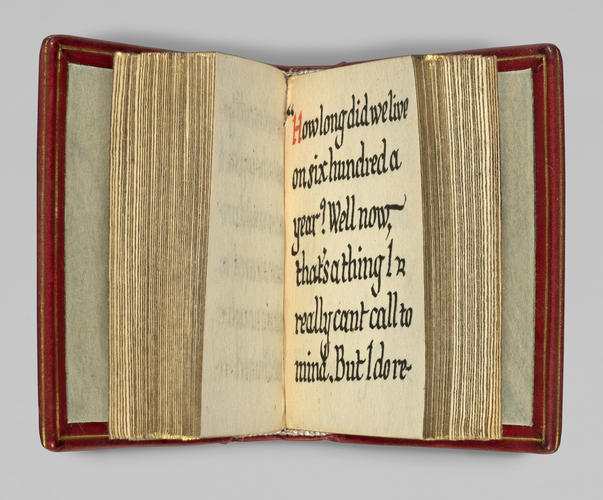 “How long did we live
on six hundred a
year? Well now,
that's a thing I
really cant call to
mind. But I do re-